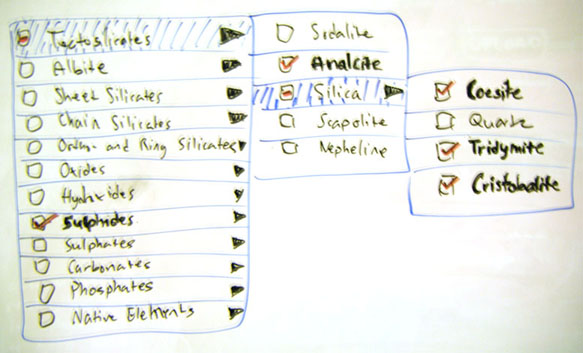 Tectosilicates
Albite
Sheet Silicates
Chain Silicates
Ortho- and Ring Silicates
Oxides
Hydroxides
Sulphides
Sulphates
Carbonates
Phosphates
Native Elements
Sodalite
Analcite
Silica
Scapolite
Nepheline
Coesite
Quartz
Tridymite
Cristobalite